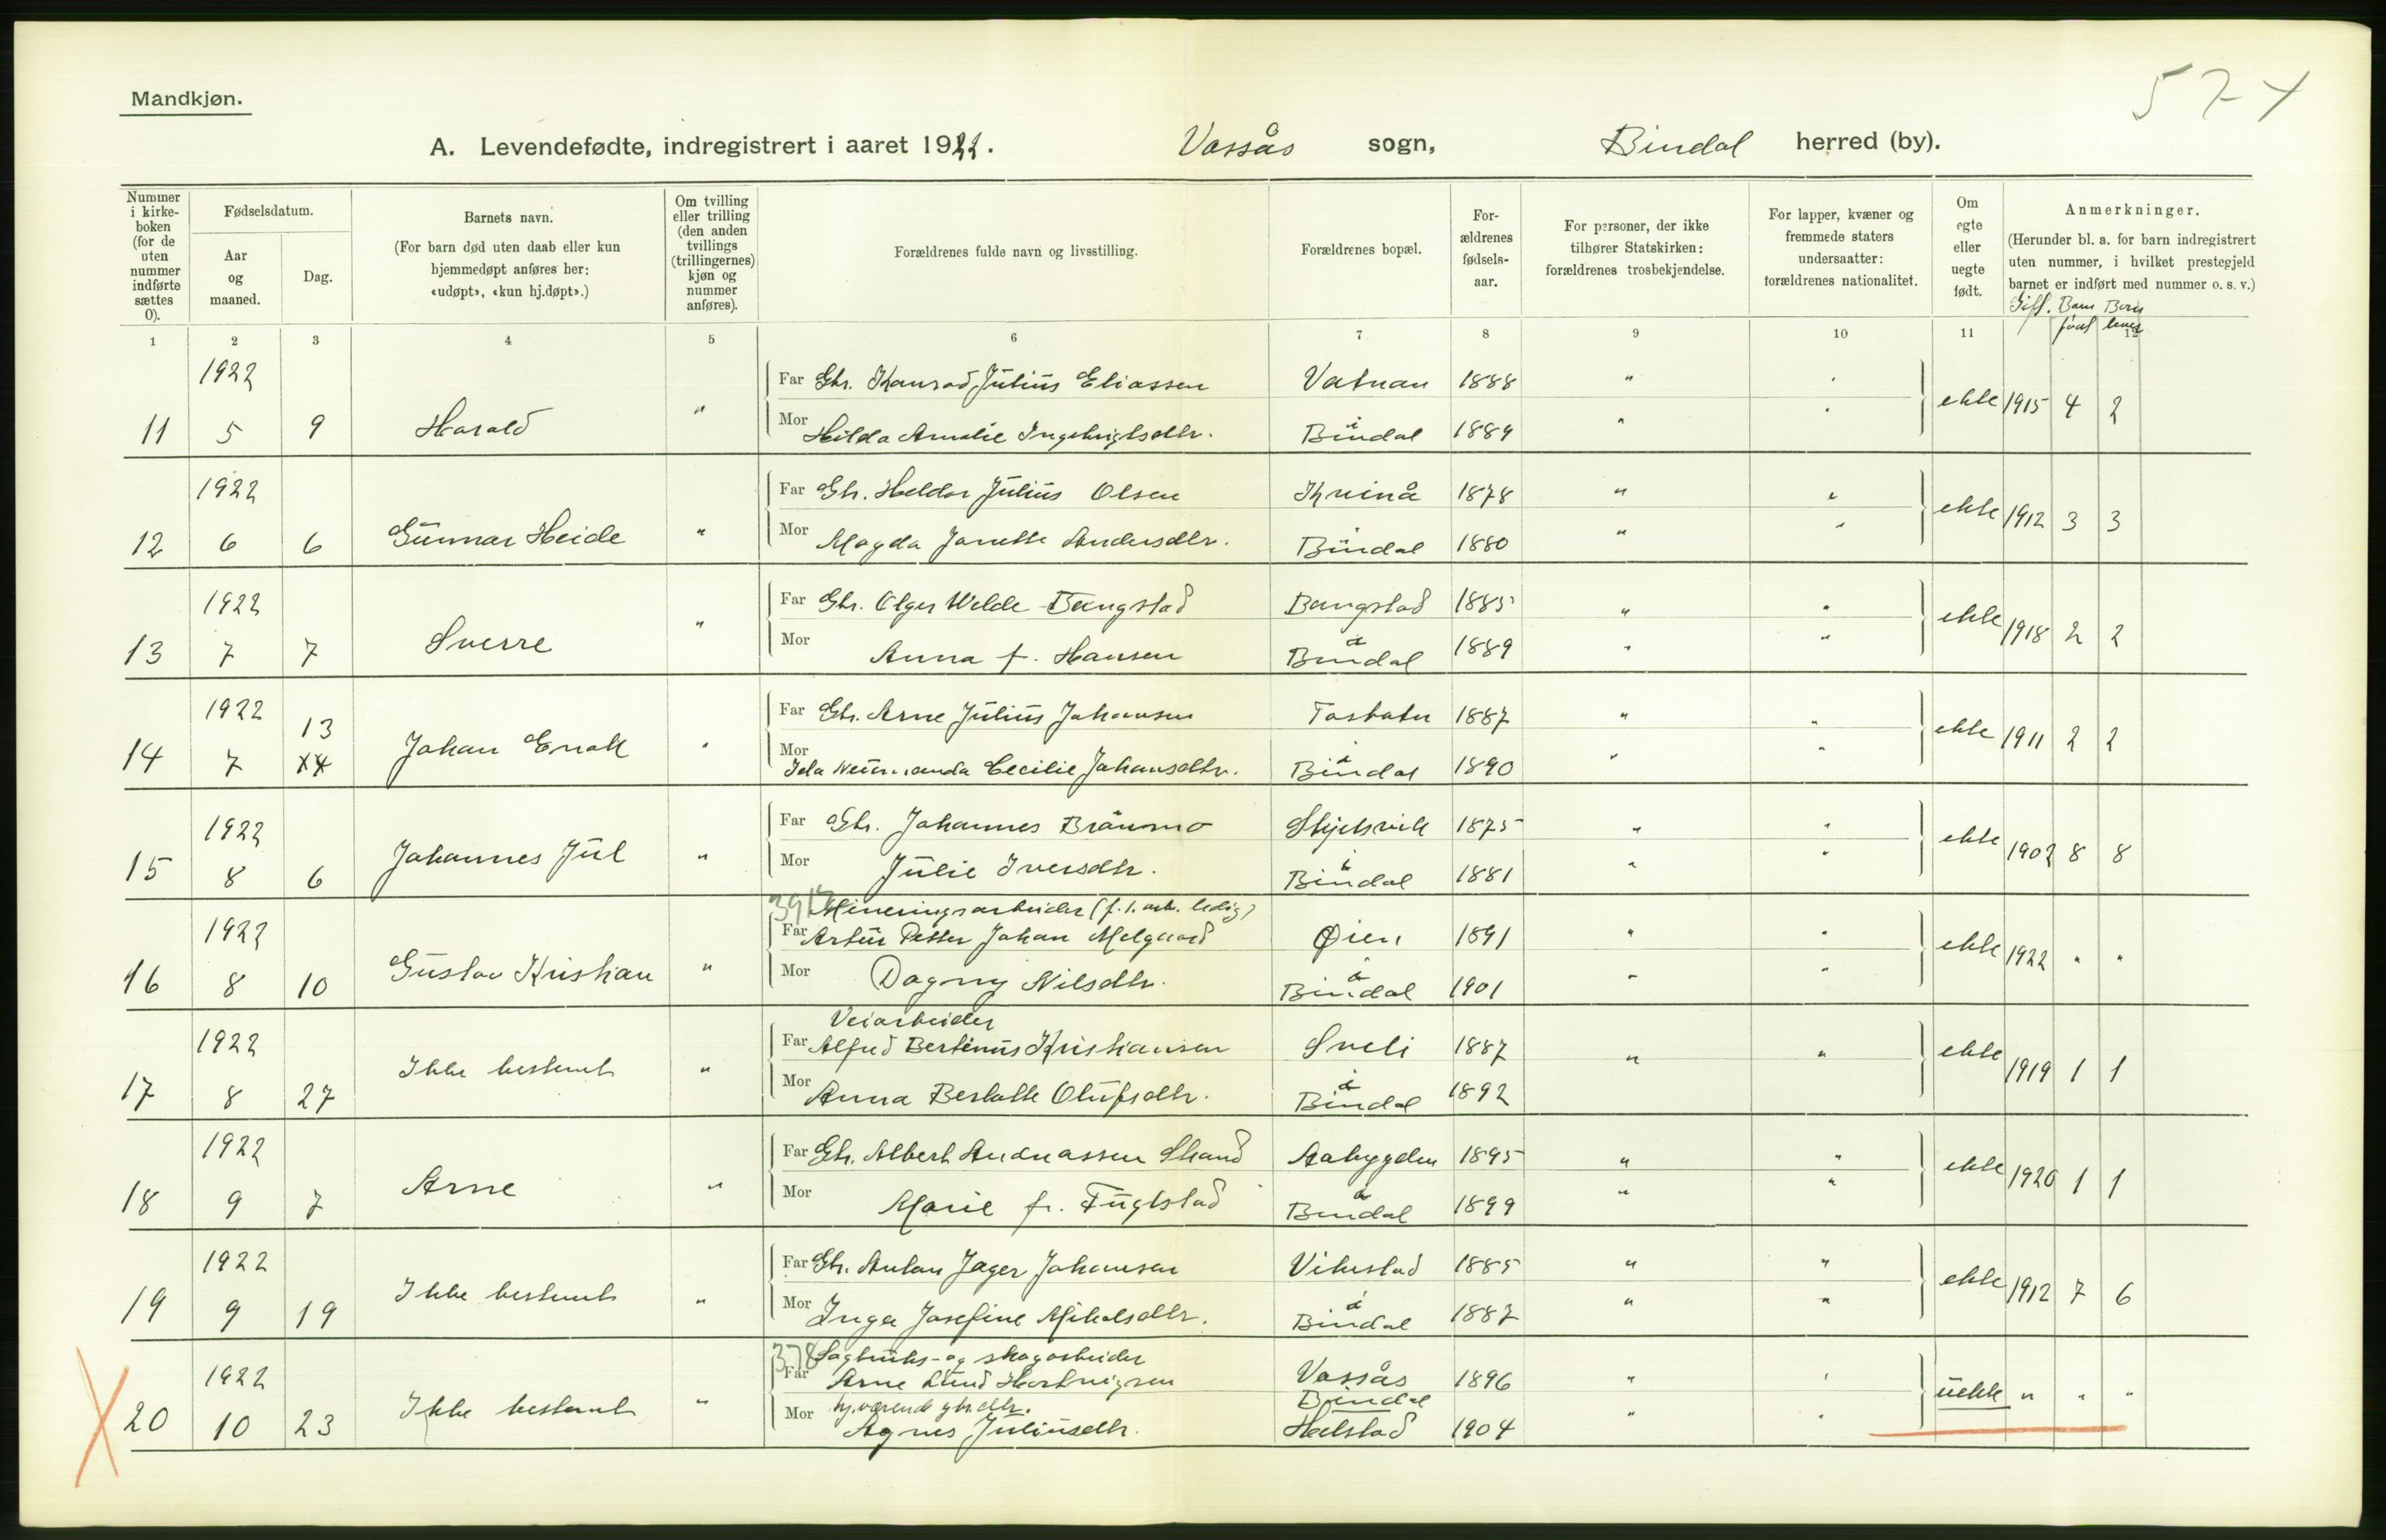 574
Mandkjøn.
A. Levendefødte, indregistrert i aaret 1922. Vassås sogn, Bindal herred (by).
Nummer i kirke-boken (for de uten nummer indførte sættes 0).
Fødselsdatum.
Aar og maaned.
Dag.
Barnets navn.
(For barn død uten daab eller kun hjemmedøpt anføres her: «udøpt», «kun hj.døpt».)
Om tvilling eller trilling (den anden tvillings (trillingernes) kjøn og nummer anføres).
Forældrenes fulde navn og livsstilling.
Forældrenes bopæl.
For-ældrenes fødsels-aar.
For personer, der ikke tilhører Statskirken: forældrenes trosbekjendelse.
For lapper, kvæner og fremmede staters undersaatter: forældrenes nationalitet.
Om egte eller uegte født.
Anmerkninger.
(Herunder bl. a. for barn indregistrert uten nummer, i hvilket prestegjeld barnet er indført med nummer o. s. v.)
Gift. Barn Børn
født lever
1 2 3 4 5 6 7 8 9 10 11 12
1922 Far Gbr. Konrad Julius Eliassen Vatnan 1888 " "
11 5 9 Harald " Mor Hilda Amalie Ingebrigtsdtr. i Bindal 1889 " " ekte 1915 4 2
1922 Far Gbr. Haldor Julius Olsen Kvinå 1878 " "
12 6 6 Gunnar Heide " Mor Magda Janette Andersdtr. i Bindal 1880 " " ekte 1912 3 3
1922 Far Gbr. Olger Welde Bangstad Bangstad 1885 " "
13 7 7 Sverre " Mor Anna f. Hansen i Bindal 1889 " " ekte 1918 2 2
1922 13 Far Gbr. Arne Julius Johansen Tosbotn 1887 " "
14 7 Johan Enok " Mor Ida Neumanda Cecilie Johansdtr. i Bindal 1890 " " ekte 1911 2 2
1922 Far Gbr. Johannes Brånmo Skjelsvik 1875 " "
15 8 6 Johannes Jul " Mor Julie Iversdtr. i Bindal 1881 " " ekte 1902 8 8
Mineringsarbeider (f. t. arb. ledig)
1922 Far Artur Petter Johan Melgaard Øien 1891 " "
16 8 10 Gustav Kristian " Mor Dagny Nilsdtr. i Bindal 1901 " " ekte 1922 " "
Veiarbeider
1922 Far Alfred Bertinus Kristiansen Sveli 1887 " "
17 8 27 Ikke bestemt " Mor Anna Bertatte Olufsdtr. i Bindal 1892 ekte 1919 1 1
1922 Far Gbr. Albert Andreassen Skand Aabygden 1895 " "
18 9 7 Arne " Mor Marie f. Fuglstad i Bindal 1899 " " ekte 1920 1 1
1922 Far Gbr. Anton Jager Johansen Vikestad 1885 " "
19 9 19 Ikke bestemt " Mor Inga Josefine Mikalsdtr. i Bindal 1887 " " ekte 1912 7 6
378 Sagbruks- og skogarbeider
1922 Far Arne Lund Hartvigsen Vassås Bindal 1896 " "
hj.værende gbr.dtr.
20 10 23 Ikke bestemt " Mor Agnes Juliusdtr. Helstad 1904 " " uekte " " "